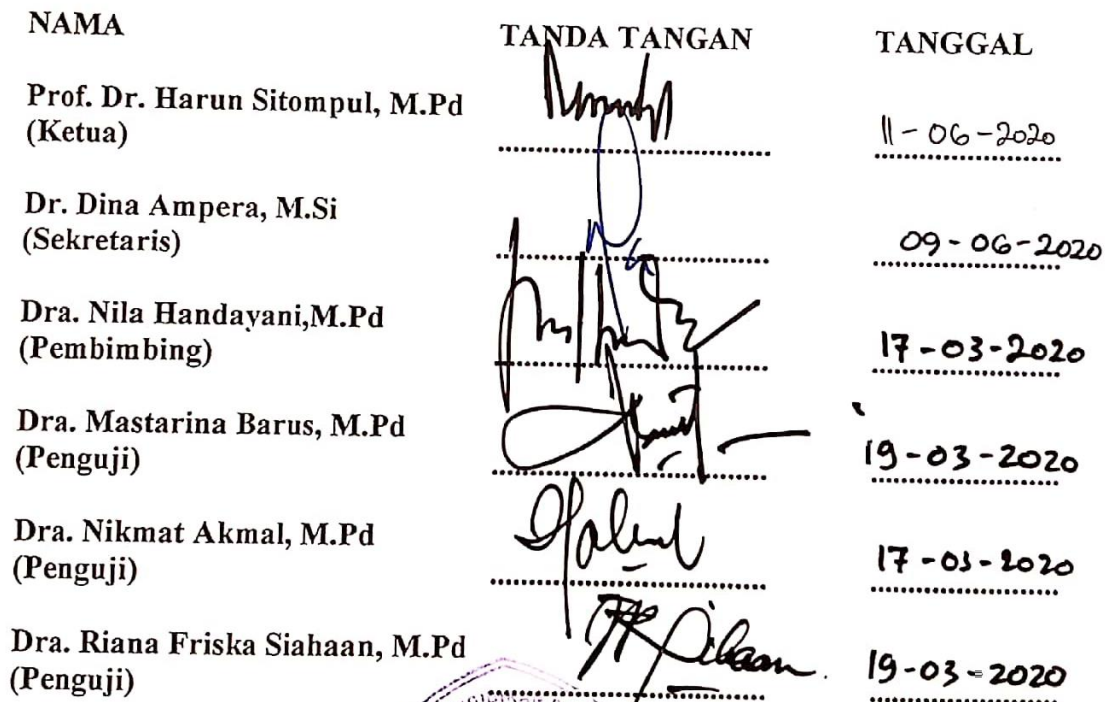 NAMA TANDA TANGAN TANGGAL
Prof. Dr. Harun Sitompul, M.Pd
(Ketua) 11-06-2020
Dr. Dina Ampera, M.Si
(Sekretaris) 09-06-2020
Dra. Nila Handayani,M.Pd
(Pembimbing) 17-03-2020
Dra. Mastarina Barus, M.Pd
(Penguji) 19-03-2020
Dra. Nikmat Akmal, M.Pd
(Penguji) 17-03-2020
Dra. Riana Friska Siahaan, M.Pd
(Penguji) 19-03-2020